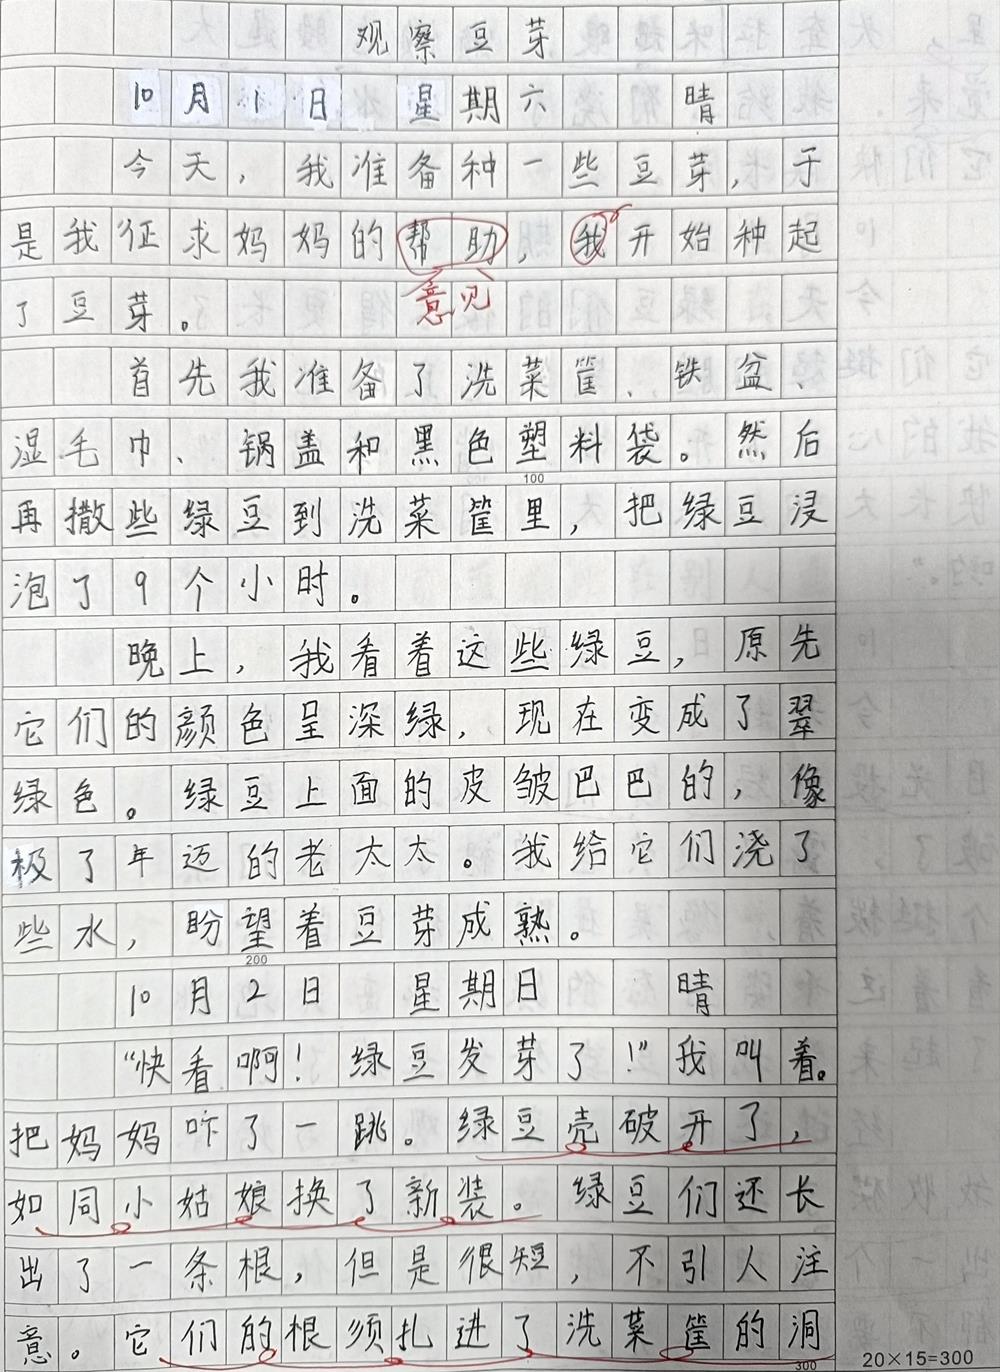 观察豆芽
10月1日 星期六 晴
今天，我准备种一些豆芽，于
是我征求妈妈的帮助，我开始种起
意见
了豆芽。
首先我准备了洗菜筐、铁盆、
湿毛巾、锅盖和黑色塑料袋。然后
100
再撒些绿豆到洗菜筐里，把绿豆浸
泡了9个小时。
晚上，我看着这些绿豆，原先
它们的颜色呈深绿，现在变成了翠
绿色。绿豆上面的皮皱巴巴的，像
极了年迈的老太太。我给它们浇了
些水，盼望着豆芽成熟。
200
10月2日 星期日 晴
“快看啊！绿豆发芽了！”我叫着。
把妈妈吓了一跳。绿豆壳破开了，
如同小姑娘换了新装。绿豆们还长
出了一条根，但是很短，不引人注
意。它们的根须扎进了洗菜筐的洞
300
20×15=300